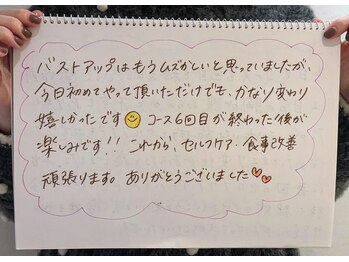 バストアップはもうムズかしいと思っていましたが、
今日初めてやって頂いただけでも、かなり変わり
嬉しかったです😊 コース6回目が終わった後が
楽しみです!! これから、セルフケア・食事改善
頑張ります。ありがとうございました♡♡